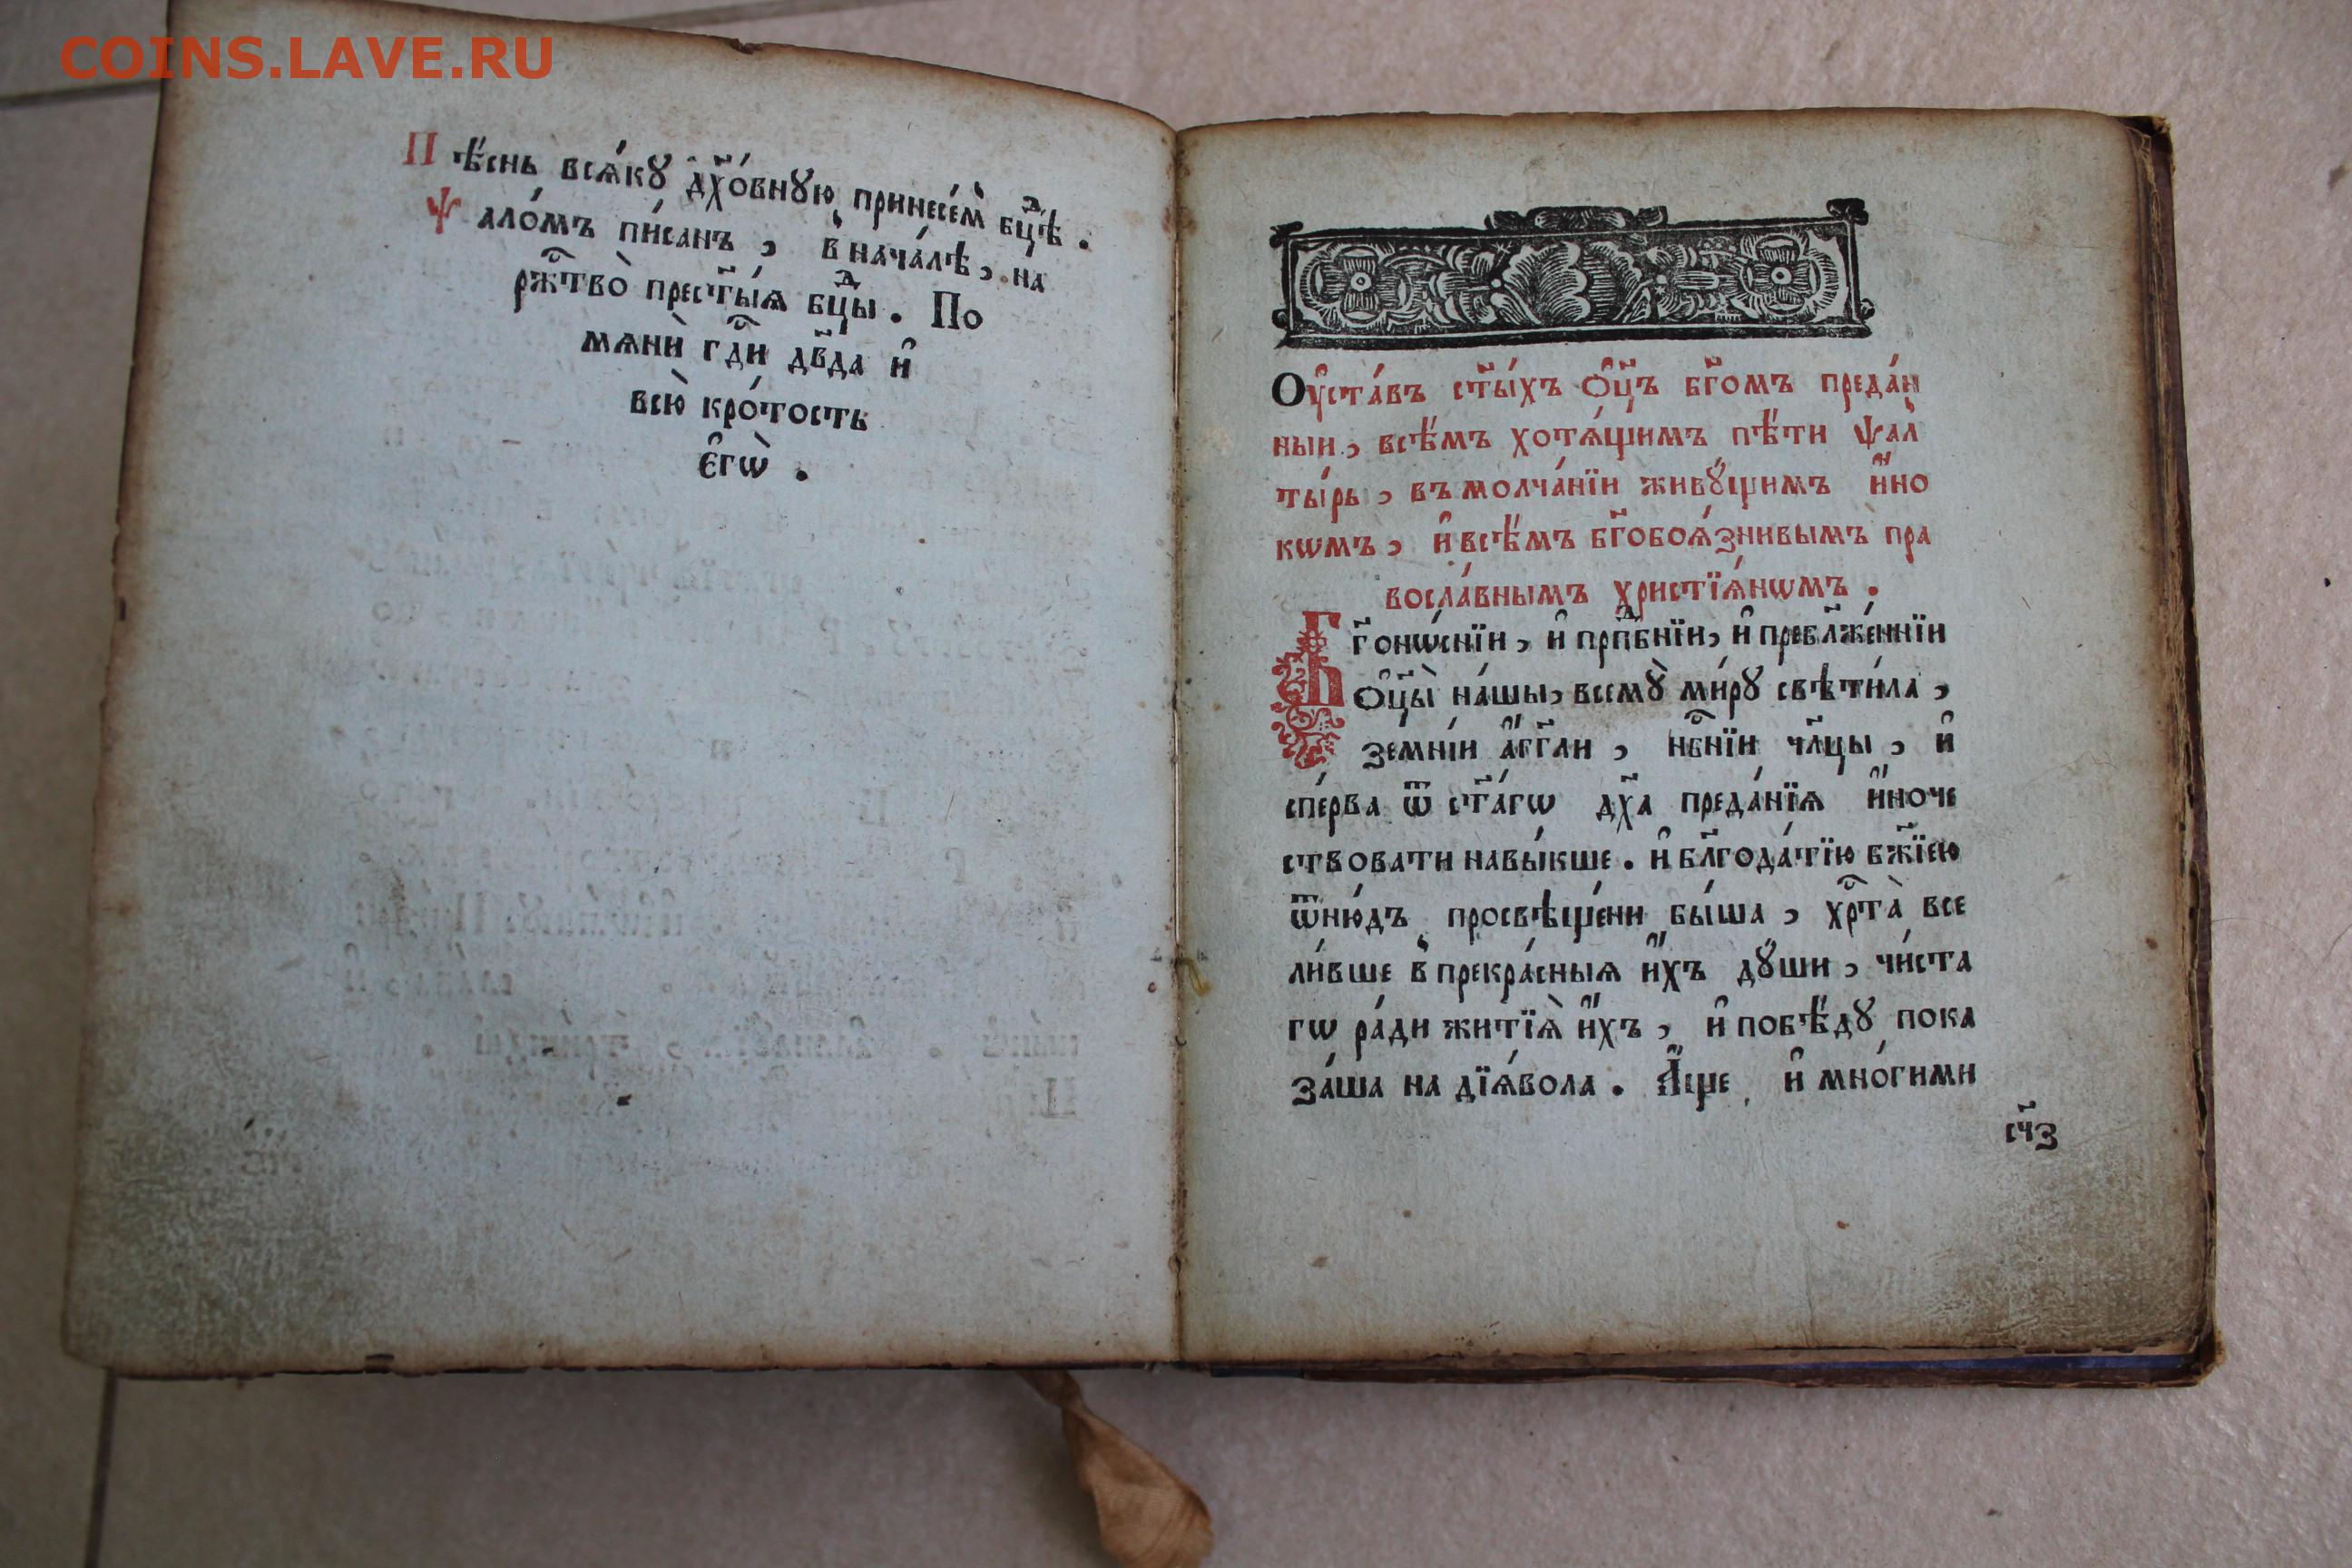 COINS.LAVE.RU
Пѣ́снь всѧ́кꙋ дх҃о́внꙋю принесе́м бцⷣѣ .
Ѱало́мъ пи́санъ , в нача́лѣ , на
ржⷭ҇тво̀ прест҃ы́ѧ бцⷣы . По
мѧнѝ гдⷭ҇и дв҃да и҆
всю̀ кро́тость
є҆гѡ̀ .
Оу҆ста́въ ст҃ы́хъ ѻ҆ц҃ъ бг҃омъ преда́н
ныи , всѣ́мъ хотѧ́щимъ пѣ́ти ѱал
ты́рь , въ молча́нїи живꙋ́щимъ и҆́но
кѡмъ , и҆ всѣ́мъ бг҃обоѧ́знивымъ пра
восла́внымъ христїѧ́нѡмъ .
Бг҃оно́снїи , и҆ прпⷣбнїи , и҆ пребл҃же́ннїи
ѻ҆ц҃ы̀ на́шы , всемꙋ̀ ми́рꙋ свѣти́ла ,
земні́и а҆́гг҃ли , нбⷭ҇нїи чл҃цы , и҆
спе́рва ѿ ст҃а́гѡ дх҃а преда́нїѧ и҆́ноче
ствовати навы́кше . и҆ бл҃года́тїю бж҃їею
ѿню́дъ просвѣще́ни бы́ша , хрⷭ҇та̀ все
ли́вше в прекра́сныѧ и҆́хъ дꙋ́ши , чи́ста
гѡ ра́ди житїѧ̀ и҆́хъ , и҆ побѣ́дꙋ пока
за́ша на дїѧ́вола . А҆́ще и҆ мно́гими
сч҃з